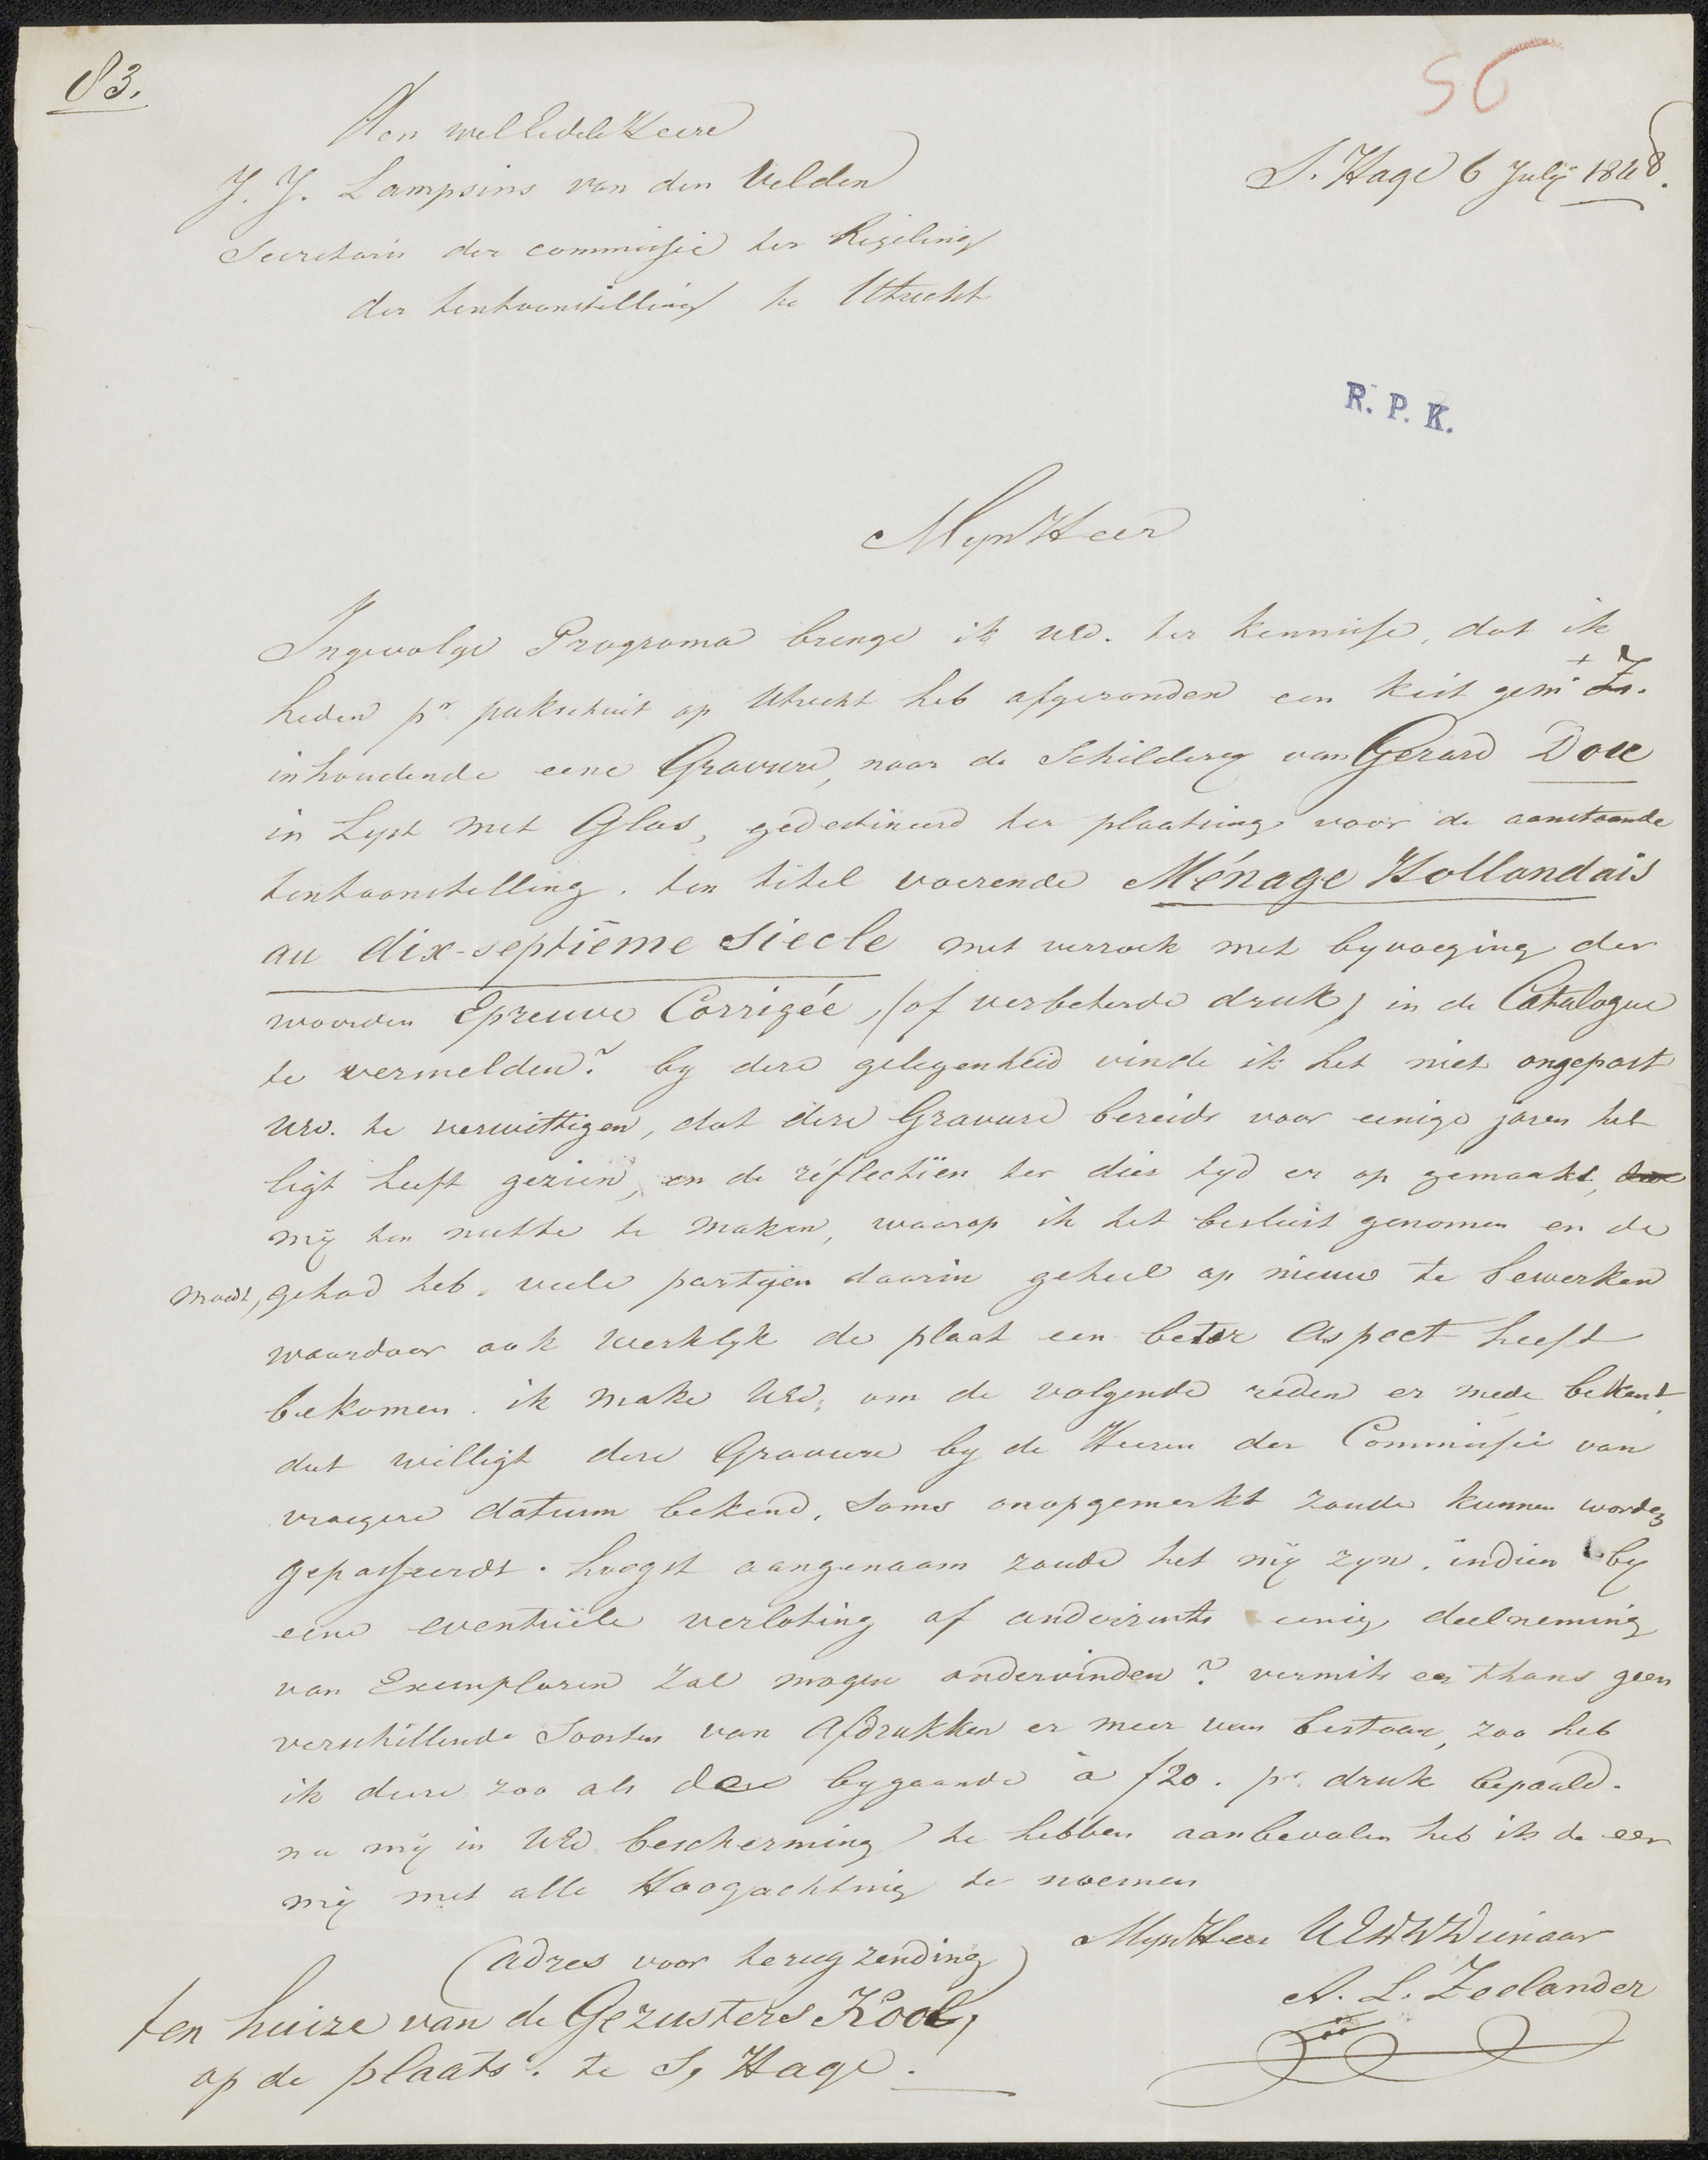 83.
56
Aan welEdele Heere
J. J. Lampsins van den Velden
S. Hage 6 July 1848.
Secretaris der commissie ter Regeling
der tentoonstelling te Utrecht
R. P. K.
MynHeer
Ingevolge Programa brenge ik UEd. ter kennisse, dat ik
heden pr. pakschuit op Utrecht heb afgezonden een kist gemt Z.
inhoudende eene Gravure, naar de Schildery van Gerard Doue
in Lyst met Glas, gedestineerd ter plaatsing voor de aanstaande
tentoonstelling. ten titel voerende Ménage Hollandais
au dix-septième Siecle met verzoek met byvoeging der
woorden Epreuve Corrigée, (of verbeterde druk) in de Catalogue
te vermelden? by deze gelegenheid vinde ik het niet ongepast
UEd. te verwittigen, dat deze Gravure bereids voor eenige jaren het
ligt heeft gezien, en de réflectiën ter dier tyd er op gemaakt,
mÿ ten nutte te maken, waarop ik het besluit genomen en de
moed, gehad heb. veele partyen daarin geheel op nieuw te bewerken
waardoor ook werklyk de plaat een beter Aspect heeft
bekomen. ik make UEd. om de volgende reden er mede bekent,
dat willigt deze Gravure by de Heeren der Commissie van
vroegere datum bekend, soms onopgemerkt zoude kunnen worden
gepasseerdt. hoogst aangenaam zoude het mÿ zyn. indien by
eene eventuële verloting of anderzints eenig deelneming
van Exemplaren zal mogen ondervinden? vermits er thans geen
verschillende Soorten van Afdrukken er meer van bestaan, zoo heb
ik deze zoo als deze bygaande à f20. pr. druk bepaald.
na mÿ in UEd bescherming te hebben aanbevolen heb ik de eer
mÿ met alle Hoogachting te noemen
MynHeer UEWWDienaar
A. L. Zeelander
(adres voor terugzending)
ten huize van de Gezusters Kool,
op de plaats. te S. Hage.